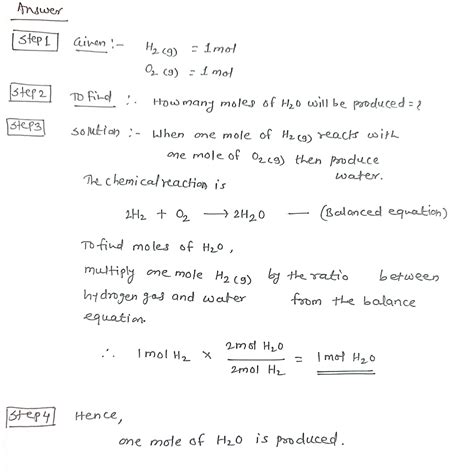 Answer
Step1 Given :- H₂(g) = 1mol
O₂(g) = 1mol
Step2 To Find :. How many moles of H₂O will be produced = ?
Step3 solution :- When one mole of H₂(g) reacts with
one mole of O₂(g) then produce
water.
The chemical reaction is
2H₂ + O₂ ⟶ 2H₂O — (Balanced equation)
To find moles of H₂O,
multiply one mole H₂(g) by the ratio between
hydrogen gas and water from the balance
equation.
∴ 1mol H₂ × 2mol H₂O / 2mol H₂ = 1mol H₂O
Step4 Hence,
one mole of H₂O is produced.